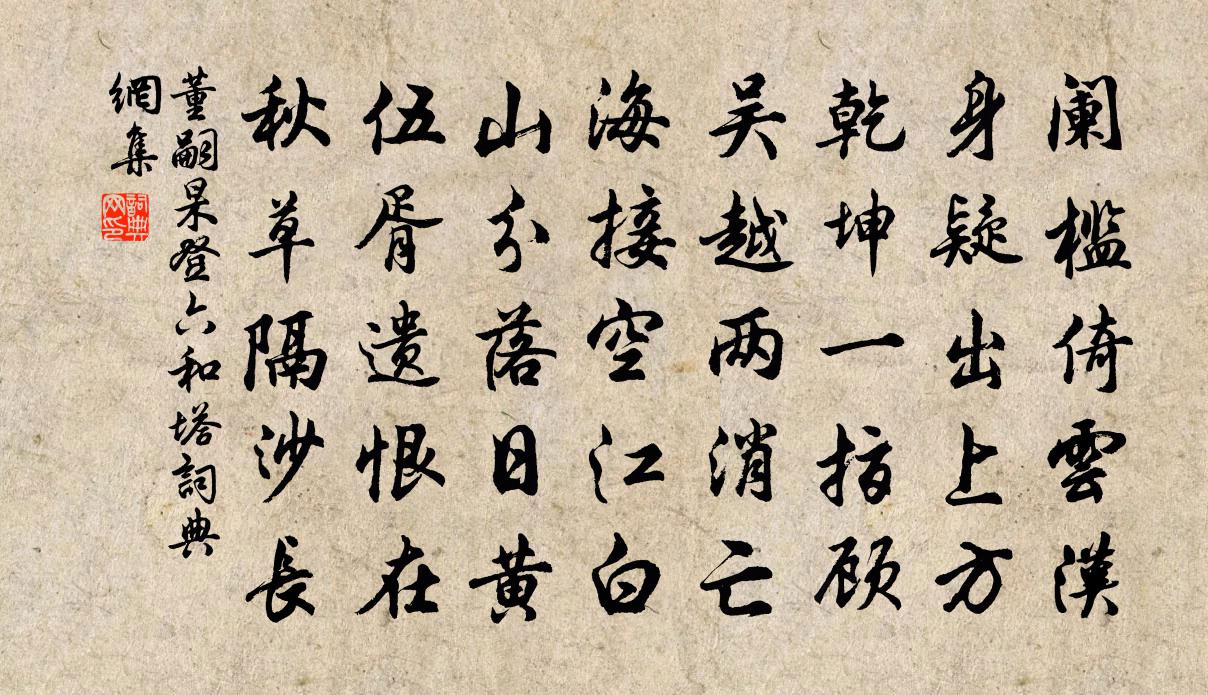 阑槛倚雲漢
身疑出上方
乾坤一指顾
吴越两消亡
海接空江白
山分落日黄
伍胥遗恨在
秋草隔沙長
董嗣杲登六和塔詞典
網集
詞典
网印